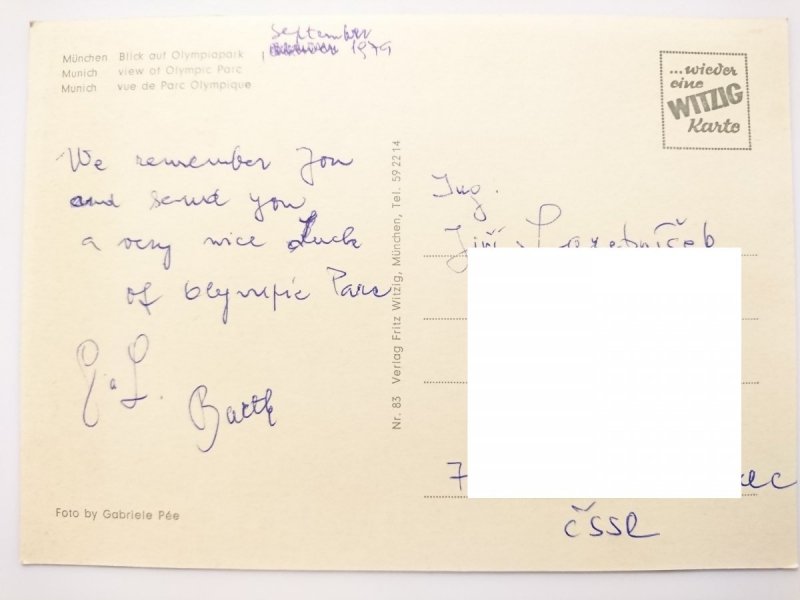 September
1979
München Blick auf Olympiapark
Munich view of Olympic Parc
Munich vue de Parc Olympique
...wieder
eine
WITZIG
Karte
We remember You
and send you
a very nice Luck
of Olympic Parc
G. a L.
Barth
Foto by Gabriele Pée
Nr. 83 Verlag Fritz Witzig, München, Tel. 59 22 14
Ing.
Jiří
7
ČSSR